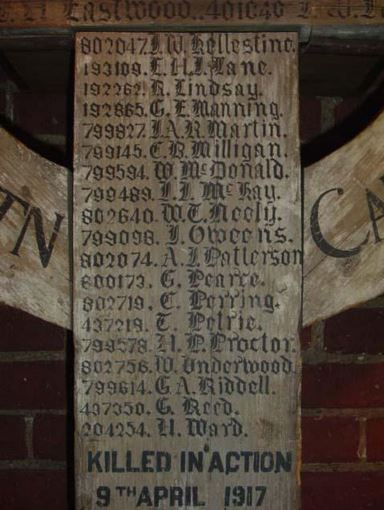 Eastwood.. 401040
802047. J. W. Hellestine.
193109. E. H. J. Lane.
192262. R. Lindsay.
192865. G. E. Manning.
799827. J. A. R. Martin.
799145. C. B. Milligan.
799594. W. McDonald.
799489. J. J. McKay.
802640. W. T. Neely.
799098. J. Oweens.
802074. A. J. Patterson
800173. G. Pearce.
802719. C. Perring.
437218. T. Petrie.
799578. H. P. Proctor.
802756. W. Underwood.
799614. G. A. Riddell.
437350. G. Reed.
204254. H. Ward.
KILLED IN ACTION
9TH APRIL 1917
TN
CA